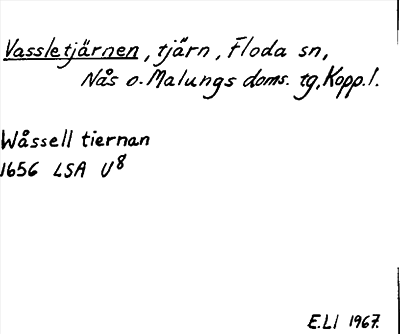 Vassletjärnen, tjärn, Floda sn,
Nås o. Malungs doms. tg, Kopp. l.
Wåssell tiernan
1656 LSA U8
E.LI 1967.